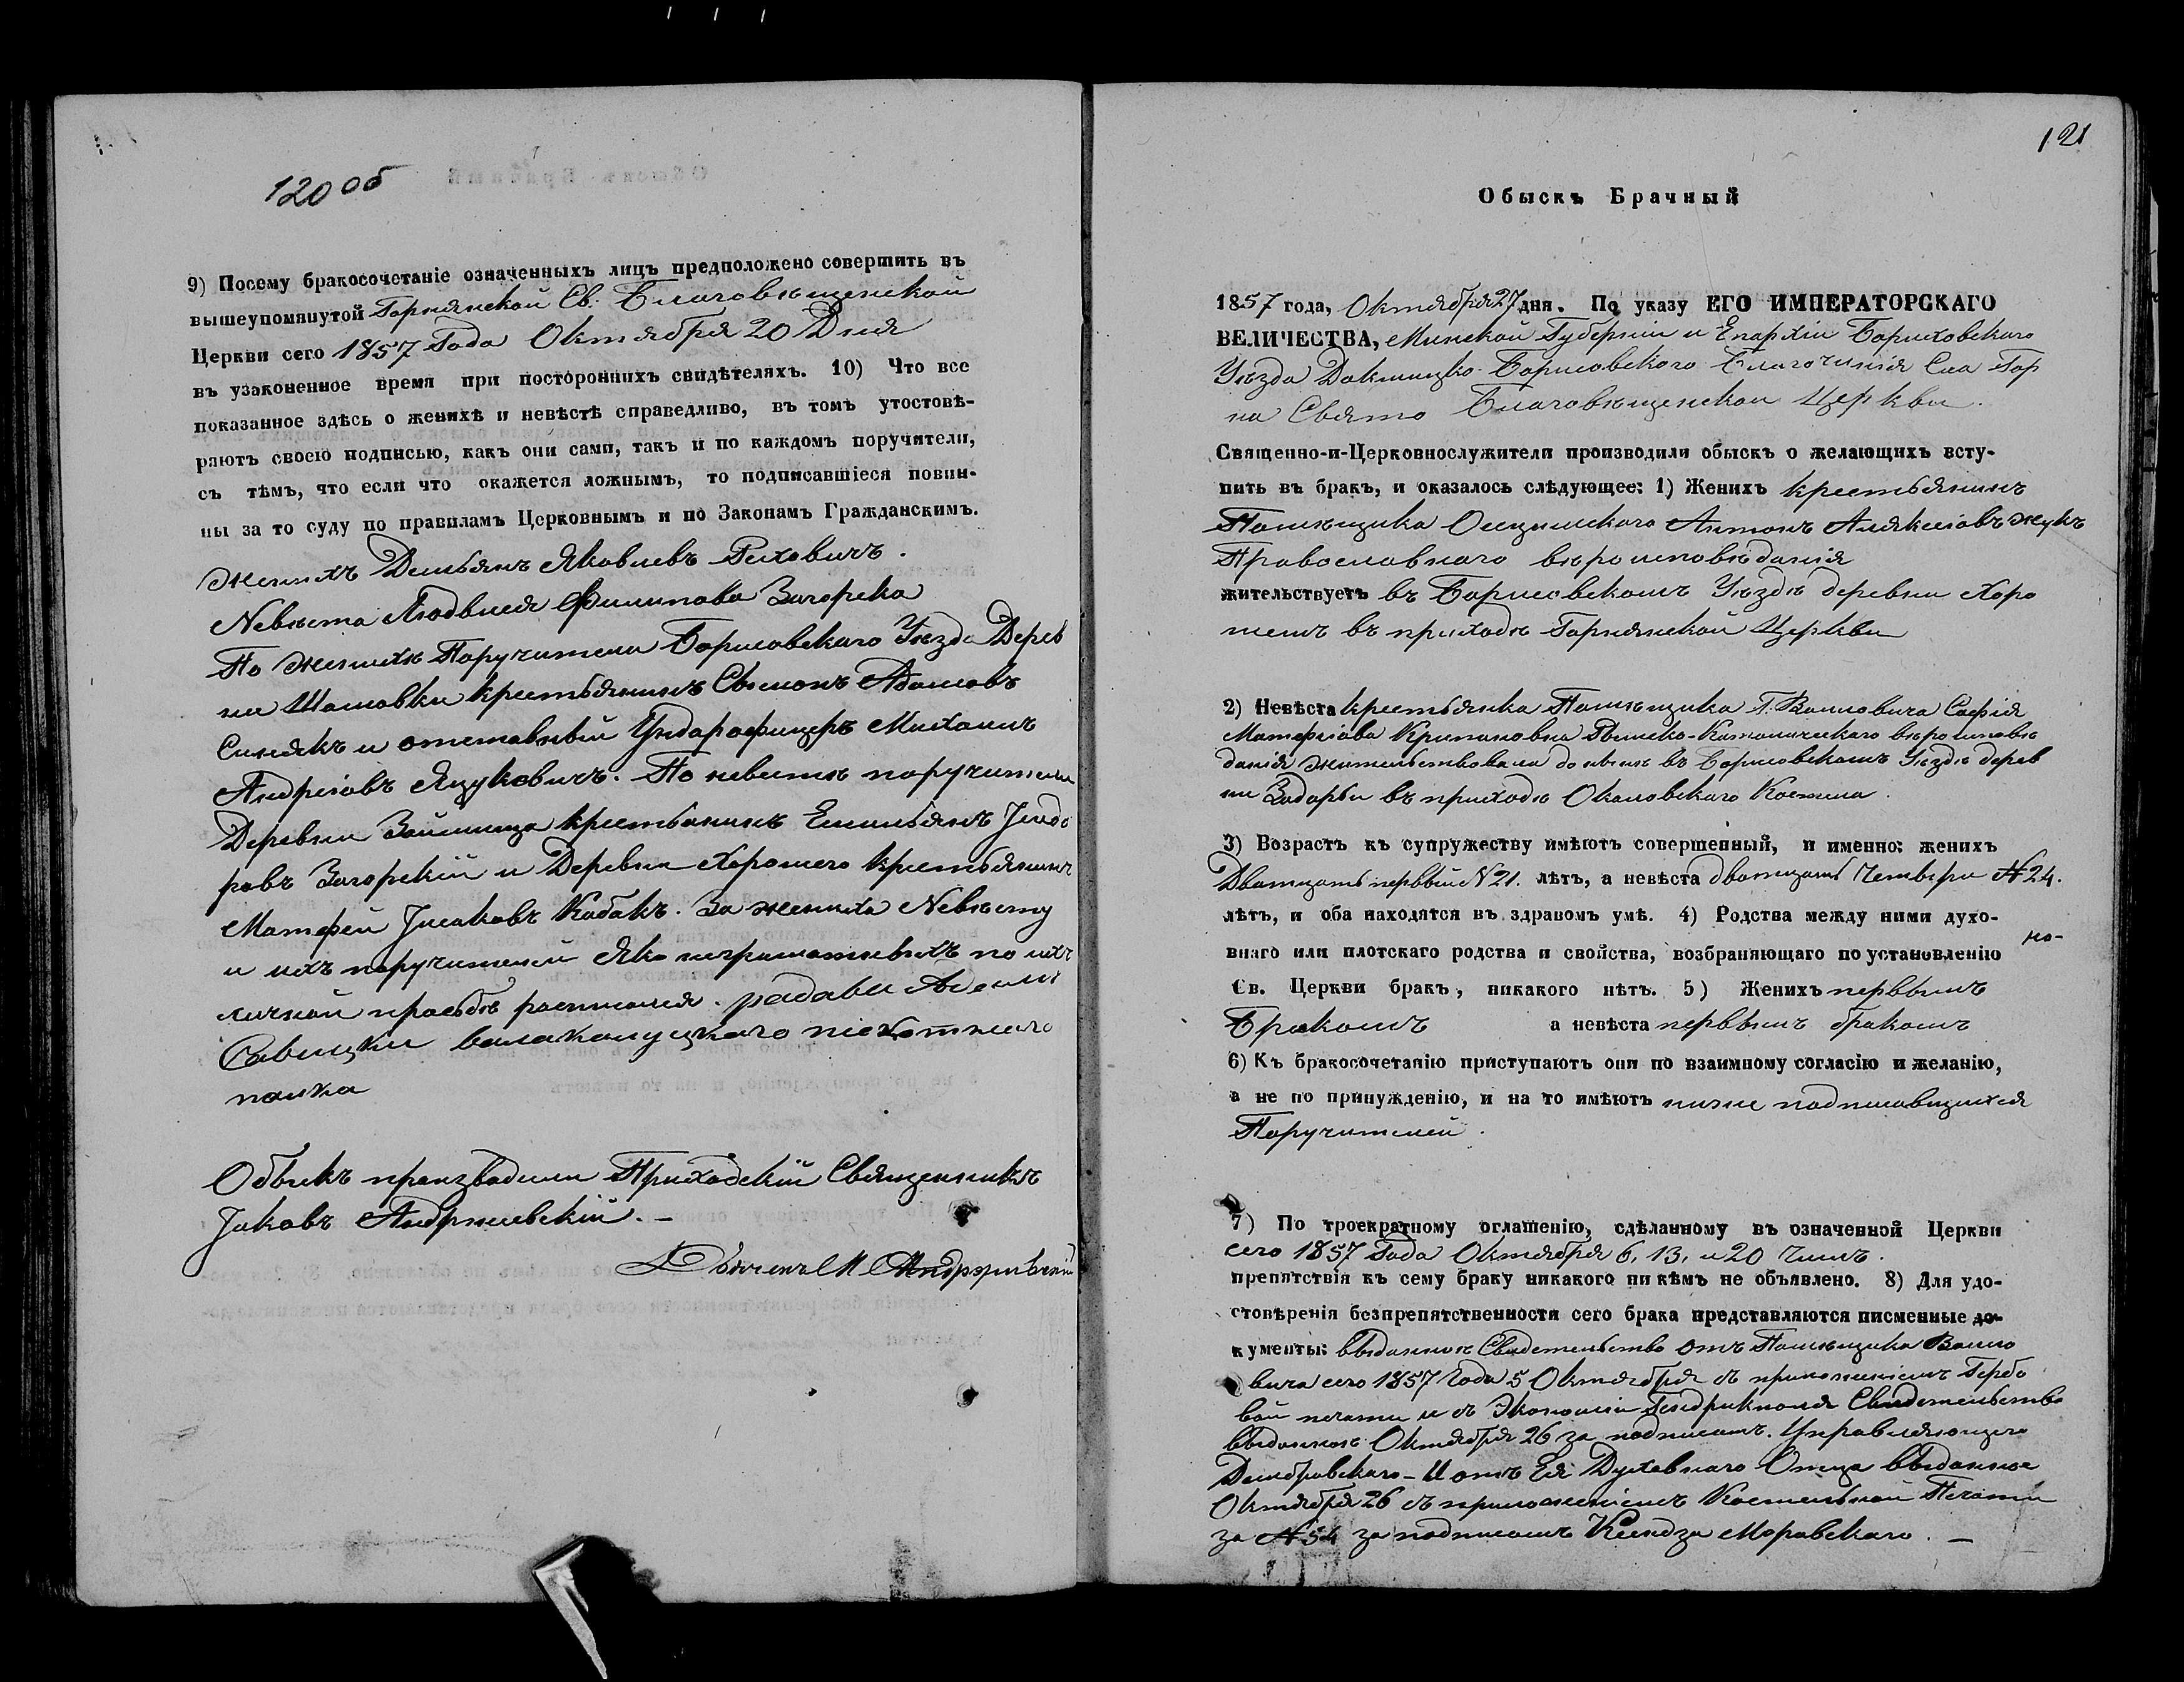 120 об
9) Посему бракосочетаніе означенныхъ лицъ предположено совершить въ
вышеупомянутой Горнянской Св. Благовѣщенской
Церкви сего 1857 Года Октября 20 Дня
въ узаконенное время при постороннихъ свидѣтеляхъ. 10) Что все
показанное здѣсь о женихѣ и невѣстѣ справедливо, въ томъ утостовѣ-
ряютъ своею подписью, какъ они сами, такъ и по каждомъ поручители,
съ тѣмъ, что если что окажется ложнымъ, то подписавшіеся повин-
ны за то суду по правиламъ Церковнымъ и по Законамъ Гражданскимъ.
Женихъ Демьянъ Яковлевъ
Невѣста Людвися Филипова Загорска
По женихѣ Поручители Борисовскаго Уѣзда Дерев
ни Шамовки крестьянинъ Сымонъ Адамовъ
Синякъ и отставный Ундарофицеръ Михаилъ
Андріовъ Яцуковичъ. По невѣстѣ поручители
Деревни Займища крестьянинъ Емильянъ
ровъ Загорскій и Деревни Хорошаго крестьянинъ
Матфей Исаковъ Кабакъ. За жениха Невѣсту
и ихъ поручителей Яко неграматныхъ по ихъ
личной прозьбѣ росписался. радавы
Савицки валакалуцкаго пехотнаго
полка
Обыскъ праизвадили Приходскій Священникъ
Іаковъ Андржеевскій. –
М Андржіевскій
121
Обыскъ Брачный
1857 года, Октября 27 дня. По указу ЕГО ИМПЕРАТОРСКАГО
ВЕЛИЧЕСТВА, Минской Губерніи и Епархіи Борисовскаго
Уѣзда Докшицко-Борисовскаго Благочинія Сла Гор
на Свято Благовѣщенской Церкви.
Священно-и-Церковнослужители производили обыскъ о желающихъ всту-
пить въ бракъ, и оказалось слѣдующее: 1) Женихъ крестьянинъ
Помѣщика Антонъ Аляксіовъ Жукъ
Православнаго вѣроисповѣданія
жительствуетъ въ Борисовскомъ Уѣздѣ деревни Хоро
шемъ въ приходѣ Горнянской Церкви
2) Невѣста крестьянка Помѣщика Г. Вашовича Софія
Матфіова Римско-Католическаго вѣроисповѣ
данія жительствовала донынѣ въ Борисовскомъ Уѣздѣ дерев
ни Задорьи въ приходѣ Околовскаго Костела.
3) Возрастъ къ супружеству имѣютъ совершенный, и именно: женихъ
Дватцать первый N 21. лѣтъ, а невѣста дватцать Четыри N 24.
лѣтъ, и оба находятся въ здравомъ умѣ. 4) Родства между ними духо-
внаго или плотскаго родства и свойства, возбраняющаго по установленію
Св. Церкви бракъ, никакого нѣтъ. 5) Женихъ первымъ
Бракомъ а невѣста первымъ бракомъ
6) Къ бракосочетанію приступаютъ они по взаимному согласію и желанію,
а не по принужденію, и на то имѣютъ ниже подписавщихся
Поручителей.
7) По троекратному оглашенію, сдѣланному въ означенной Церкви
сего 1857 Года Октября 6, 13, и 20 Числъ.
препятствія къ сему браку никакого ни кѣмъ не объявлено. 8) Для удо-
стовѣренія безпрепятственности сего брака представляются писменные до-
кументы: выданное Свидетельство отъ Помѣщика Вашо
вича сего 1857 Года 5 Октября съ приложеніемъ Гербо
вой печати и съ Экономіи Гендрикполя Свидетельство
выданное Октября 26 за подписомъ. Управляющаго
Домбровскаго – И отъ Ея Духовнаго Отца выданное
Октября 26 съ приложеніемъ Костельной Печати
за N 54 за подписомъ Ксендза Моравскаго. –